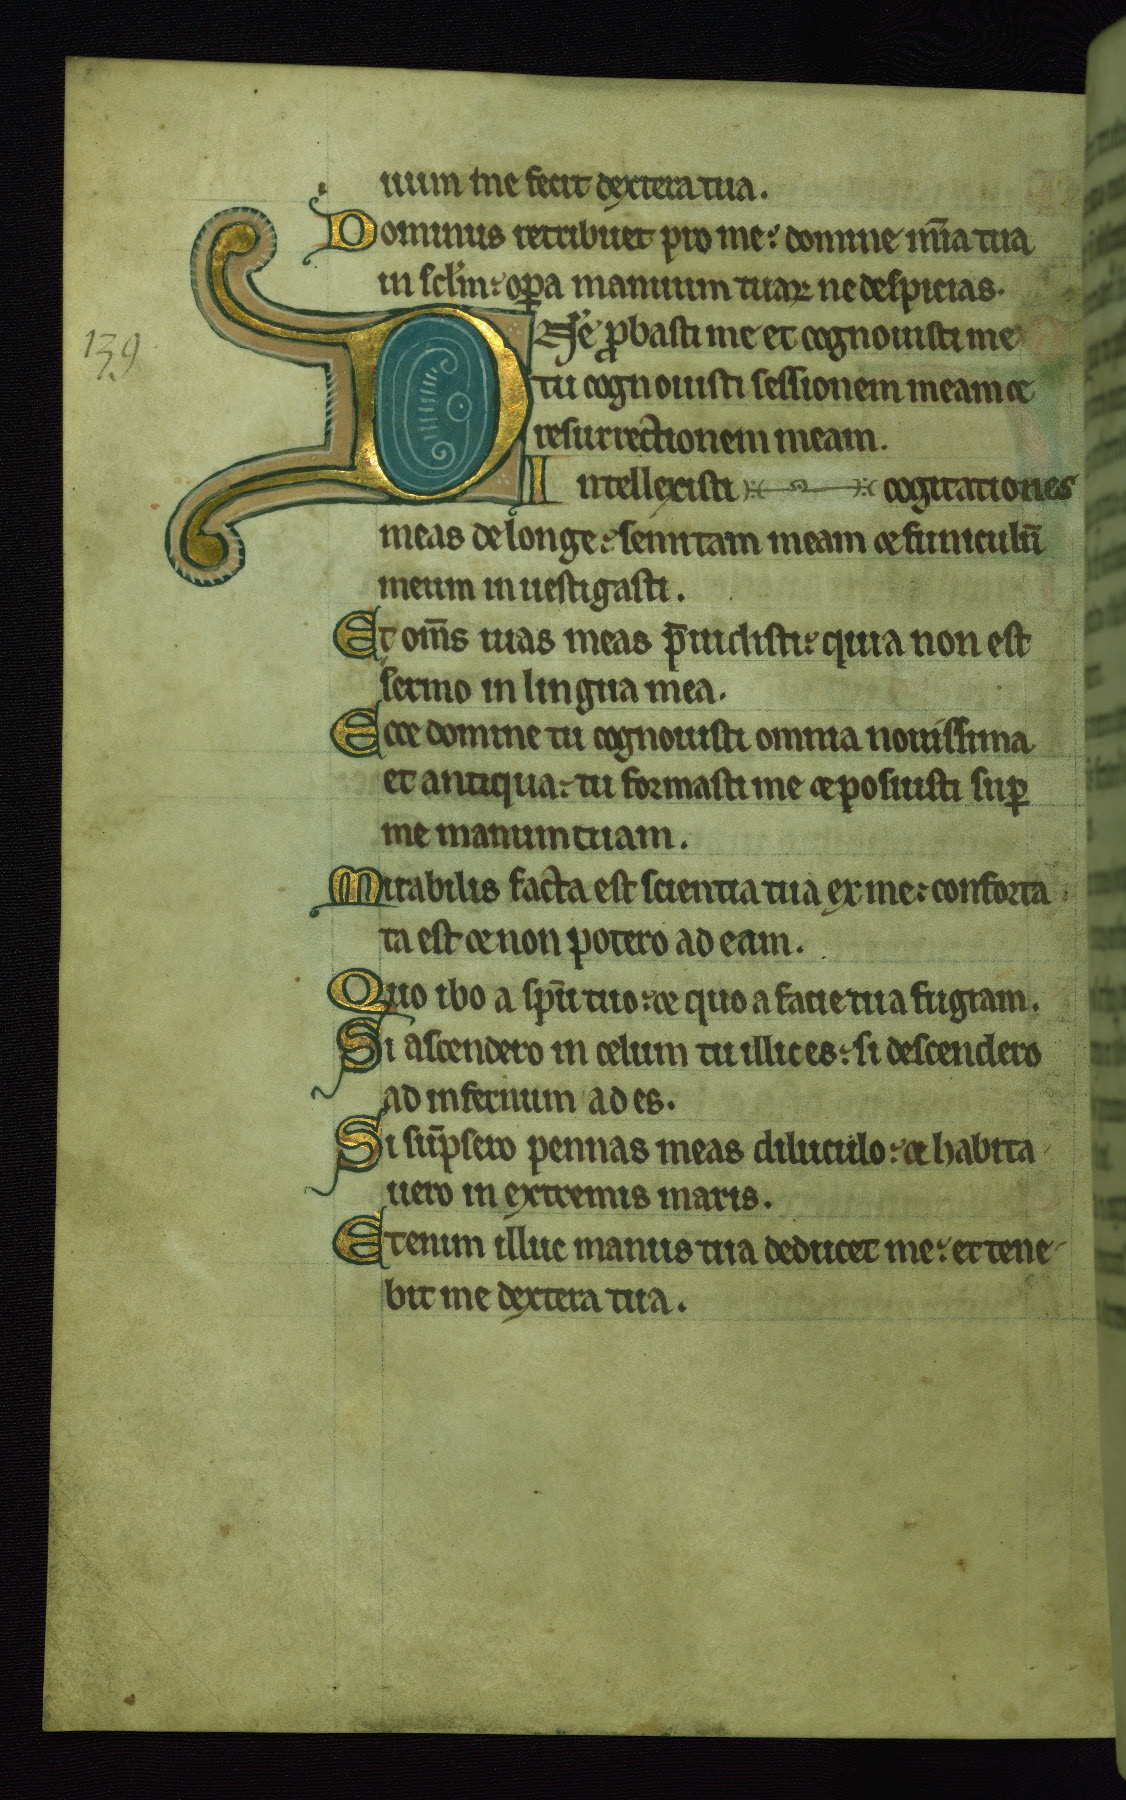 uum me fecit dextera tua.
Dominus retribuet pro me: domine mīa tua
in sclm: opa manuum tuaꝝ ne despicias.
139
Dn̄e ꝓbasti me et cognouisti me
tu cognouisti sessionem meam ⁊
resurrectionem meam.
Intellexisti cogitationes
meas de longe: semitam meam ⁊ funiculū
meum inuestigasti.
Et om̄s uias meas p̄uidisti: quia non est
sermo in lingua mea.
Ecce domine tu cognouisti omnia nouissima
et antiqua: tu formasti me ⁊ posuisti suꝑ
me manum tuam.
Mirabilis facta est scientia tua ex me: conforta
ta est ⁊ non potero ad eam.
Quo ibo a sp̄u tuo: ⁊ quo a facie tua fugiam.
Si ascendero in celum tu illic es: si descendero
ad infernum ades.
Si sūpsero pennas meas diluculo: ⁊ habita
uero in extremis maris.
Etenim illuc manus tua deducet me: et tene
bit me dextera tua.